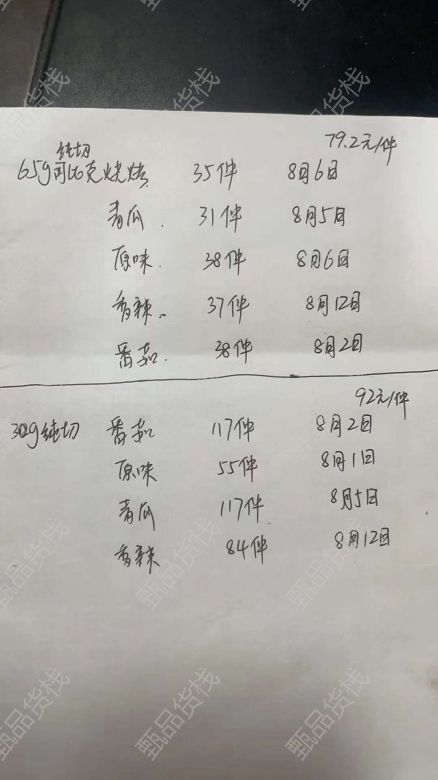 79.2元/件
纯切
65g可比克烧烤 35件 8月6日
青瓜. 31件 8月5日
原味. 38件 8月6日
香辣.. 37件 8月12日
番茄. 38件 8月2日
92元/件
30g纯切 番茄 117件 8月2日
原味 55件 8月1日
青瓜 117件 8月5日
香辣 84件 8月12日
甄品货栈